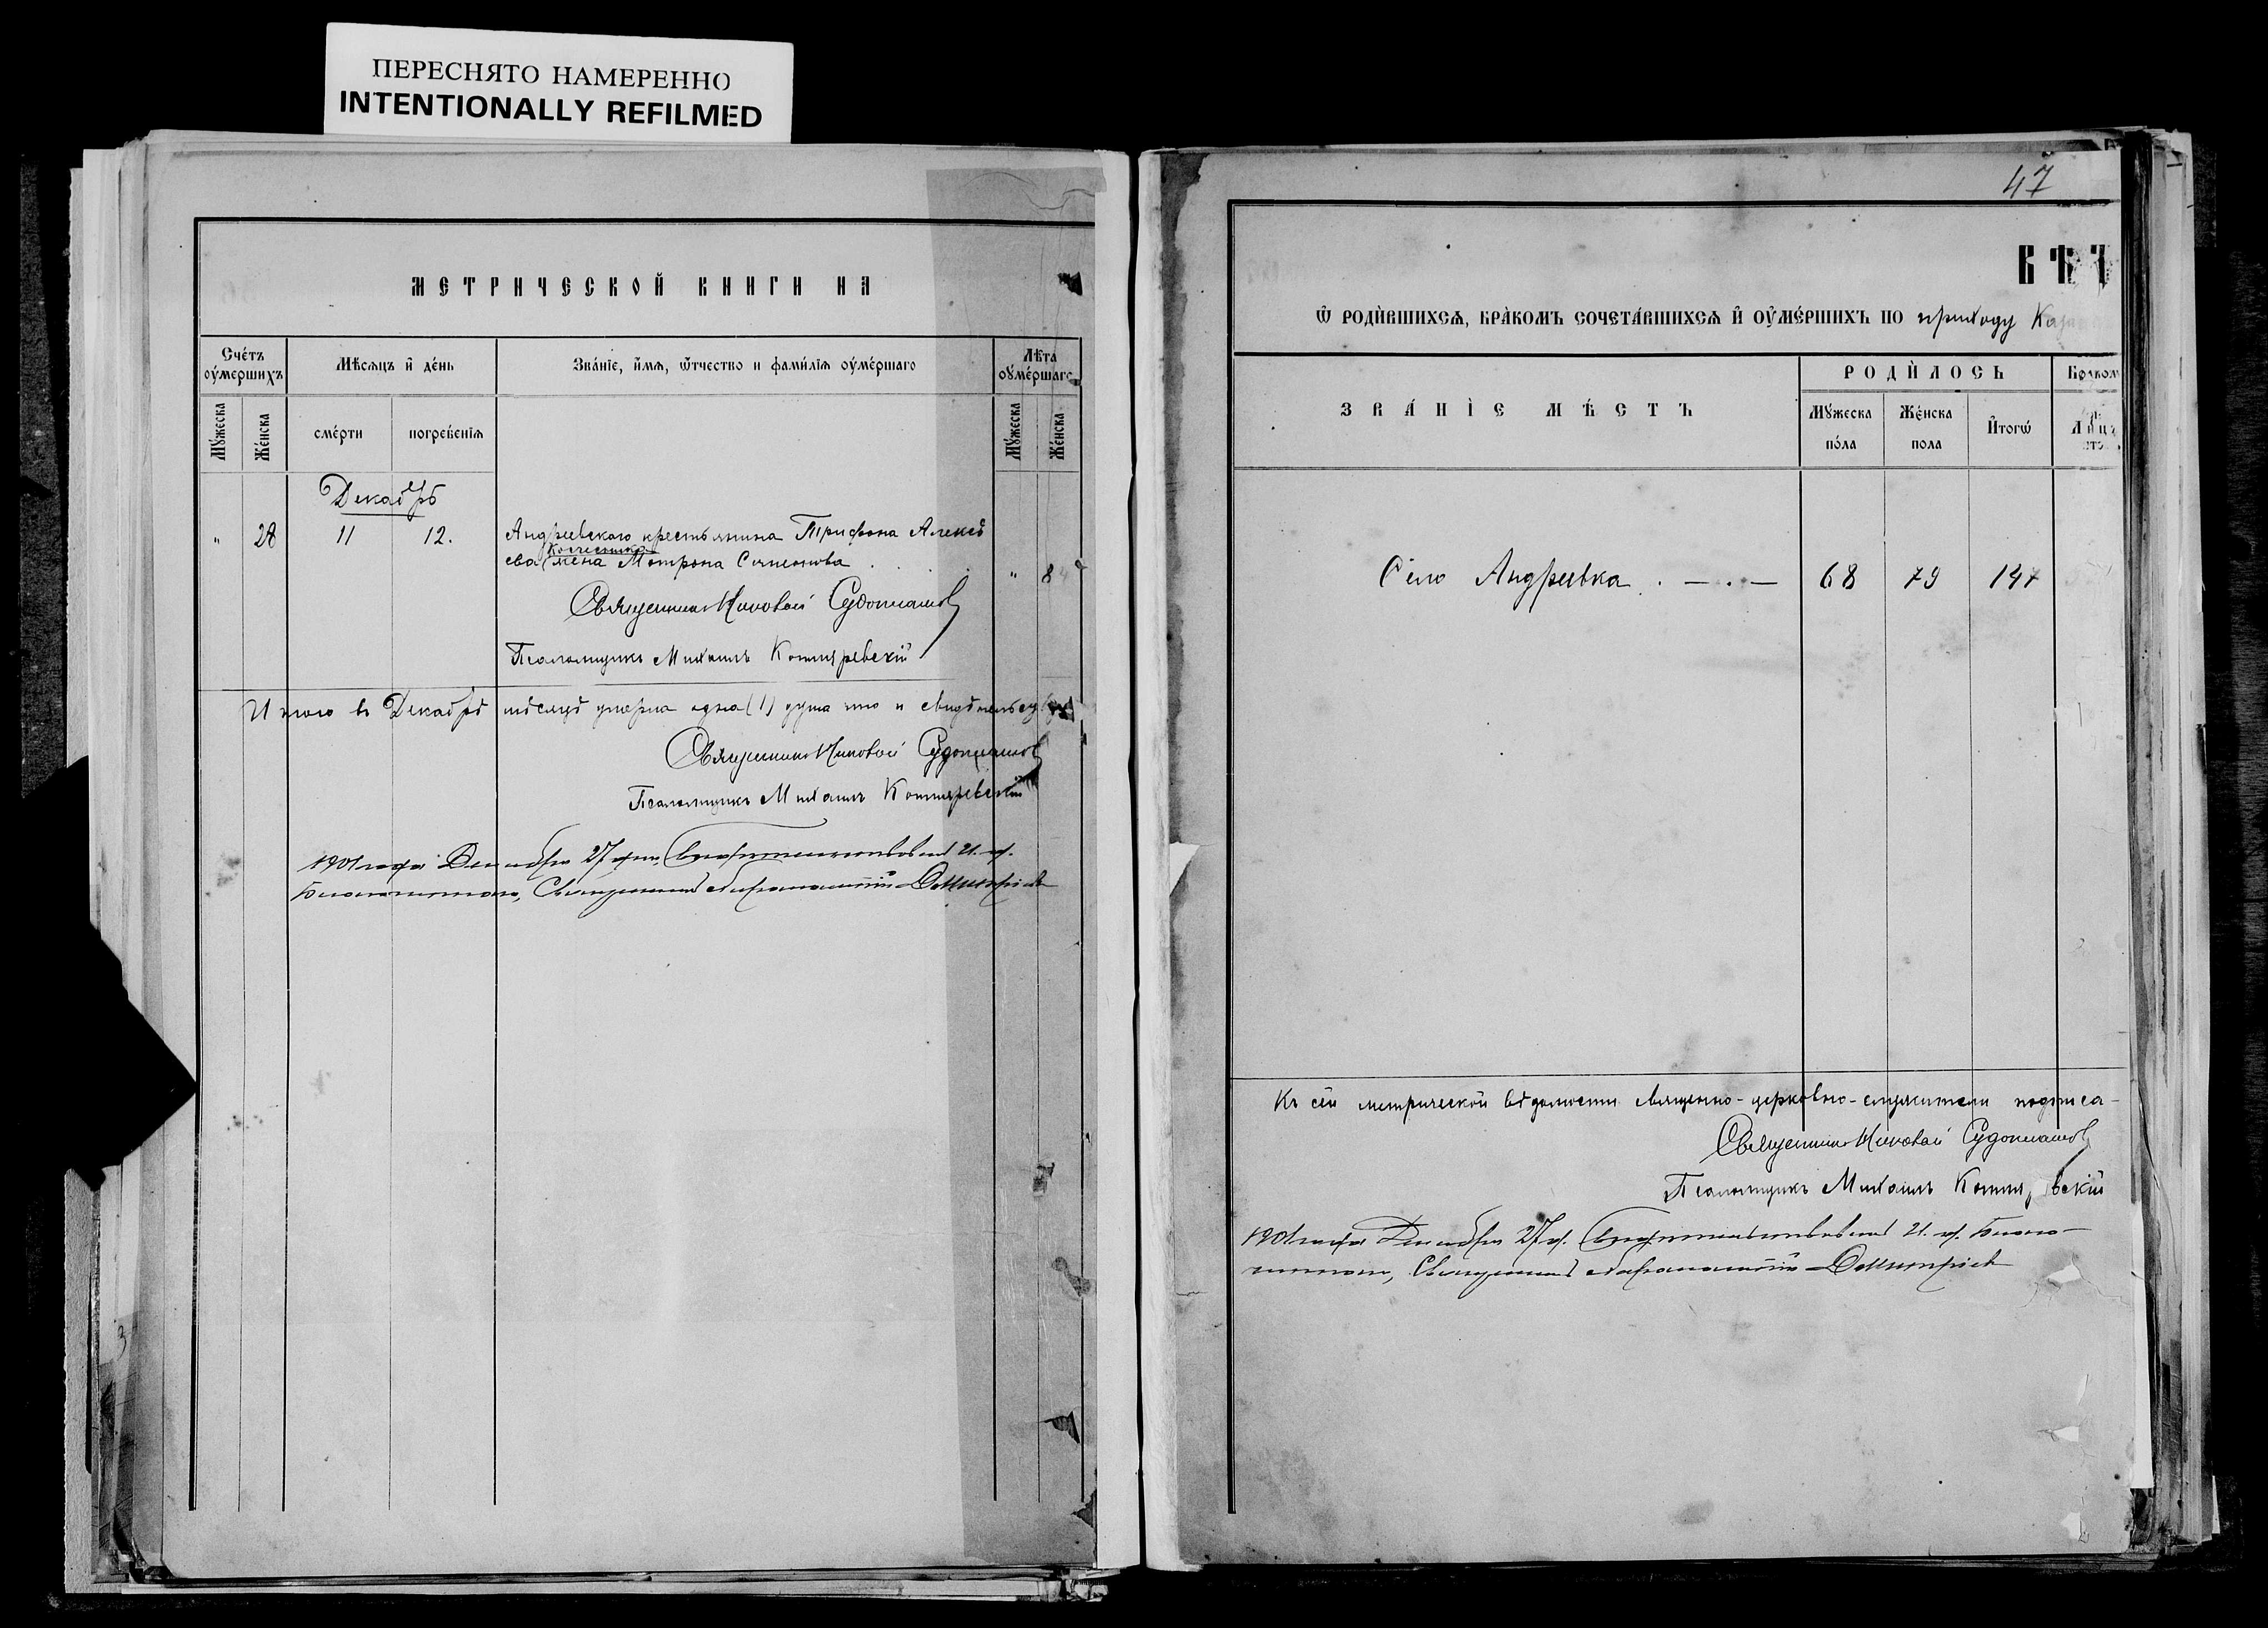 ПЕРЕСНЯТО НАМЕРЕННО
INTENTIONALLY REFILMED
МЕТРИЧЕСКОЙ КНИГИ НА
Счéтъ оумершихъ
Мѣсѧцъ и дéнь
Звáнїе, и҆мѧ, ѿтчество и фамилїѧ оумéршаго
Лѣта оумéршаго
Мужеска
Жéнска
смéрти
погребéнїѧ
Мужеска
Жéнска
Декабрь
" 28 11 12.
Андреевскаго крестьянина Трифона Алексѣ
ева жена Матрона Симеонова " 8
Священникъ Николай
Псаломщикъ Михаилъ Котляревскій
Итого въ Декабрѣ мѣсяцѣ умерла одна (1) душа что и свидѣтельству
Священникъ Николай
Псаломщикъ Михаилъ Котляревскій
1901 года Декабря 27 дня, И. д.
Благочиннаго, Священникъ Димитріевъ
47
ВѢ
Ѡ РОДИВШИХСѦ, БРАКОМЪ СОЧЕТАВШИХСѦ И ОУМЕРШИХЪ ПО приходу Каза
ЗВАНІЕ МѢСТЪ
РОДИЛОСЬ
Мужеска пола
Жéнска пола
Итогѡ
Село Андреевка . — . — 68 79 147
Къ сей метрической вѣдомости священно-церковно-служители подписа-
Священникъ Николай
Псаломщикъ Михаилъ Котляревскій
1901 года Декабря 27 д. И. д. Благо-
чиннаго, Священникъ Димитріевъ